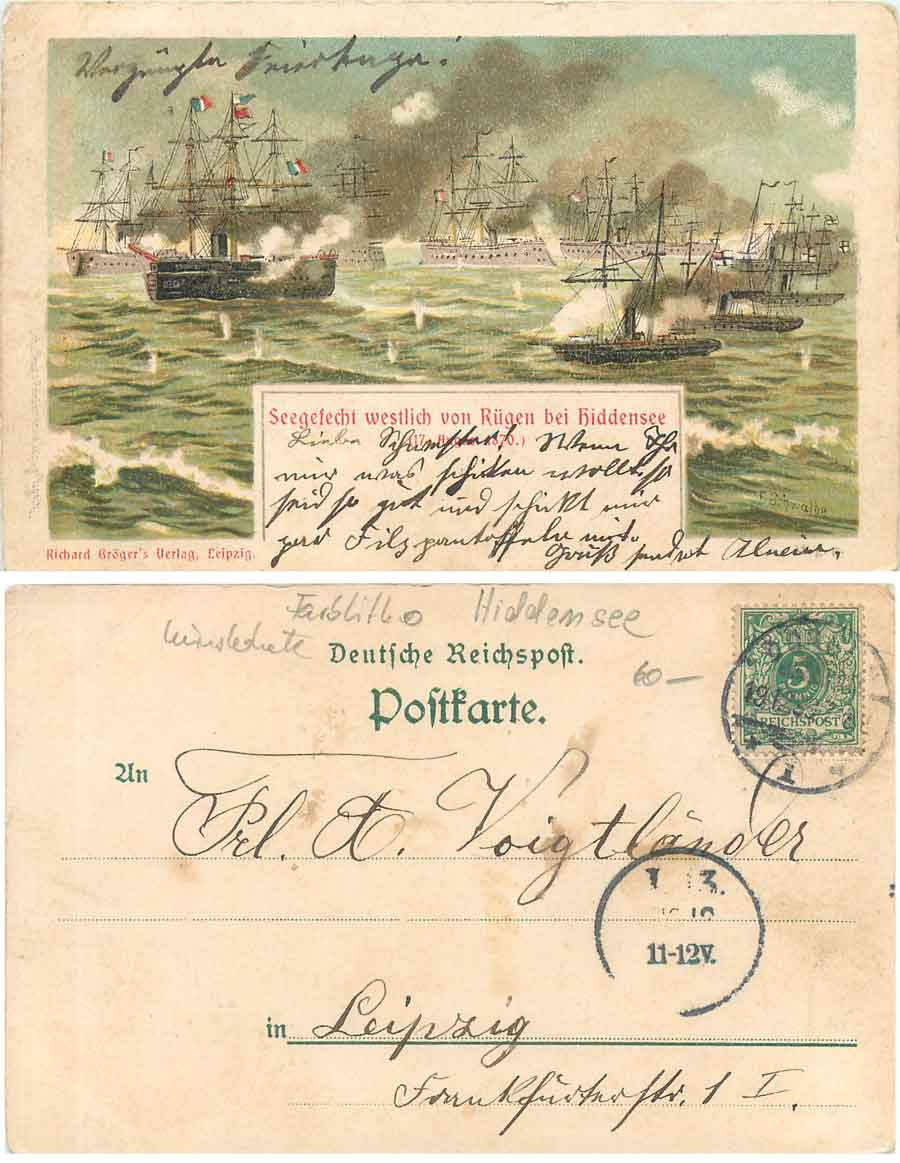 Vergnügte Feiertage!
Seegefecht westlich von Rügen bei Hiddensee
(17. August 1870.)
Liebe Wenn Ihr
mir was schiken wollt, so
seid so gut und schikt mir
Filzpantoffeln mit.
Gruß sendet
F. Schwalbe
Richard Gröger's Verlag, Leipzig.
Farblitho Hiddensee
Deutsche Reichspost.
60—
Postkarte.
5
REICHSPOST
1
An
Frl. A. Voigtländer
11-12V.
in Leipzig
Frankfurterstr. 1 I.